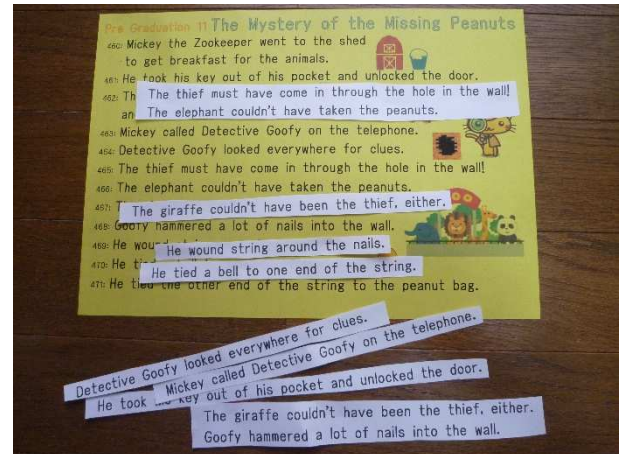 Pre Graduation 11 The Mystery of the Missing Peanuts
460: Mickey the Zookeeper went to the shed
to get breakfast for the animals.
461: He took his key out of his pocket and unlocked the door.
462: Th
The thief must have come in through the hole in the wall!
an
The elephant couldn't have taken the peanuts.
463: Mickey called Detective Goofy on the telephone.
464: Detective Goofy looked everywhere for clues.
465: The thief must have come in through the hole in the wall!
466: The elephant couldn't have taken the peanuts.
467: T
The giraffe couldn't have been the thief, either.
468: Goofy hammered a lot of nails into the wall.
469: He wound
He wound string around the nails.
470: He tied
He tied a bell to one end of the string.
471: He tied the other end of the string to the peanut bag.
Detective Goofy looked everywhere for clues.
Mickey called Detective Goofy on the telephone.
He took key out of his pocket and unlocked the door.
The giraffe couldn't have been the thief, either.
Goofy hammered a lot of nails into the wall.